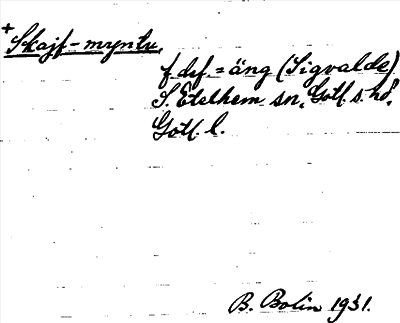 + Skajf-myntu,
f. def. = äng (Sigvalde)
S. Etelhem sn, Gotl. s. hd,
Gotl. l.
B. Bolin 1931.